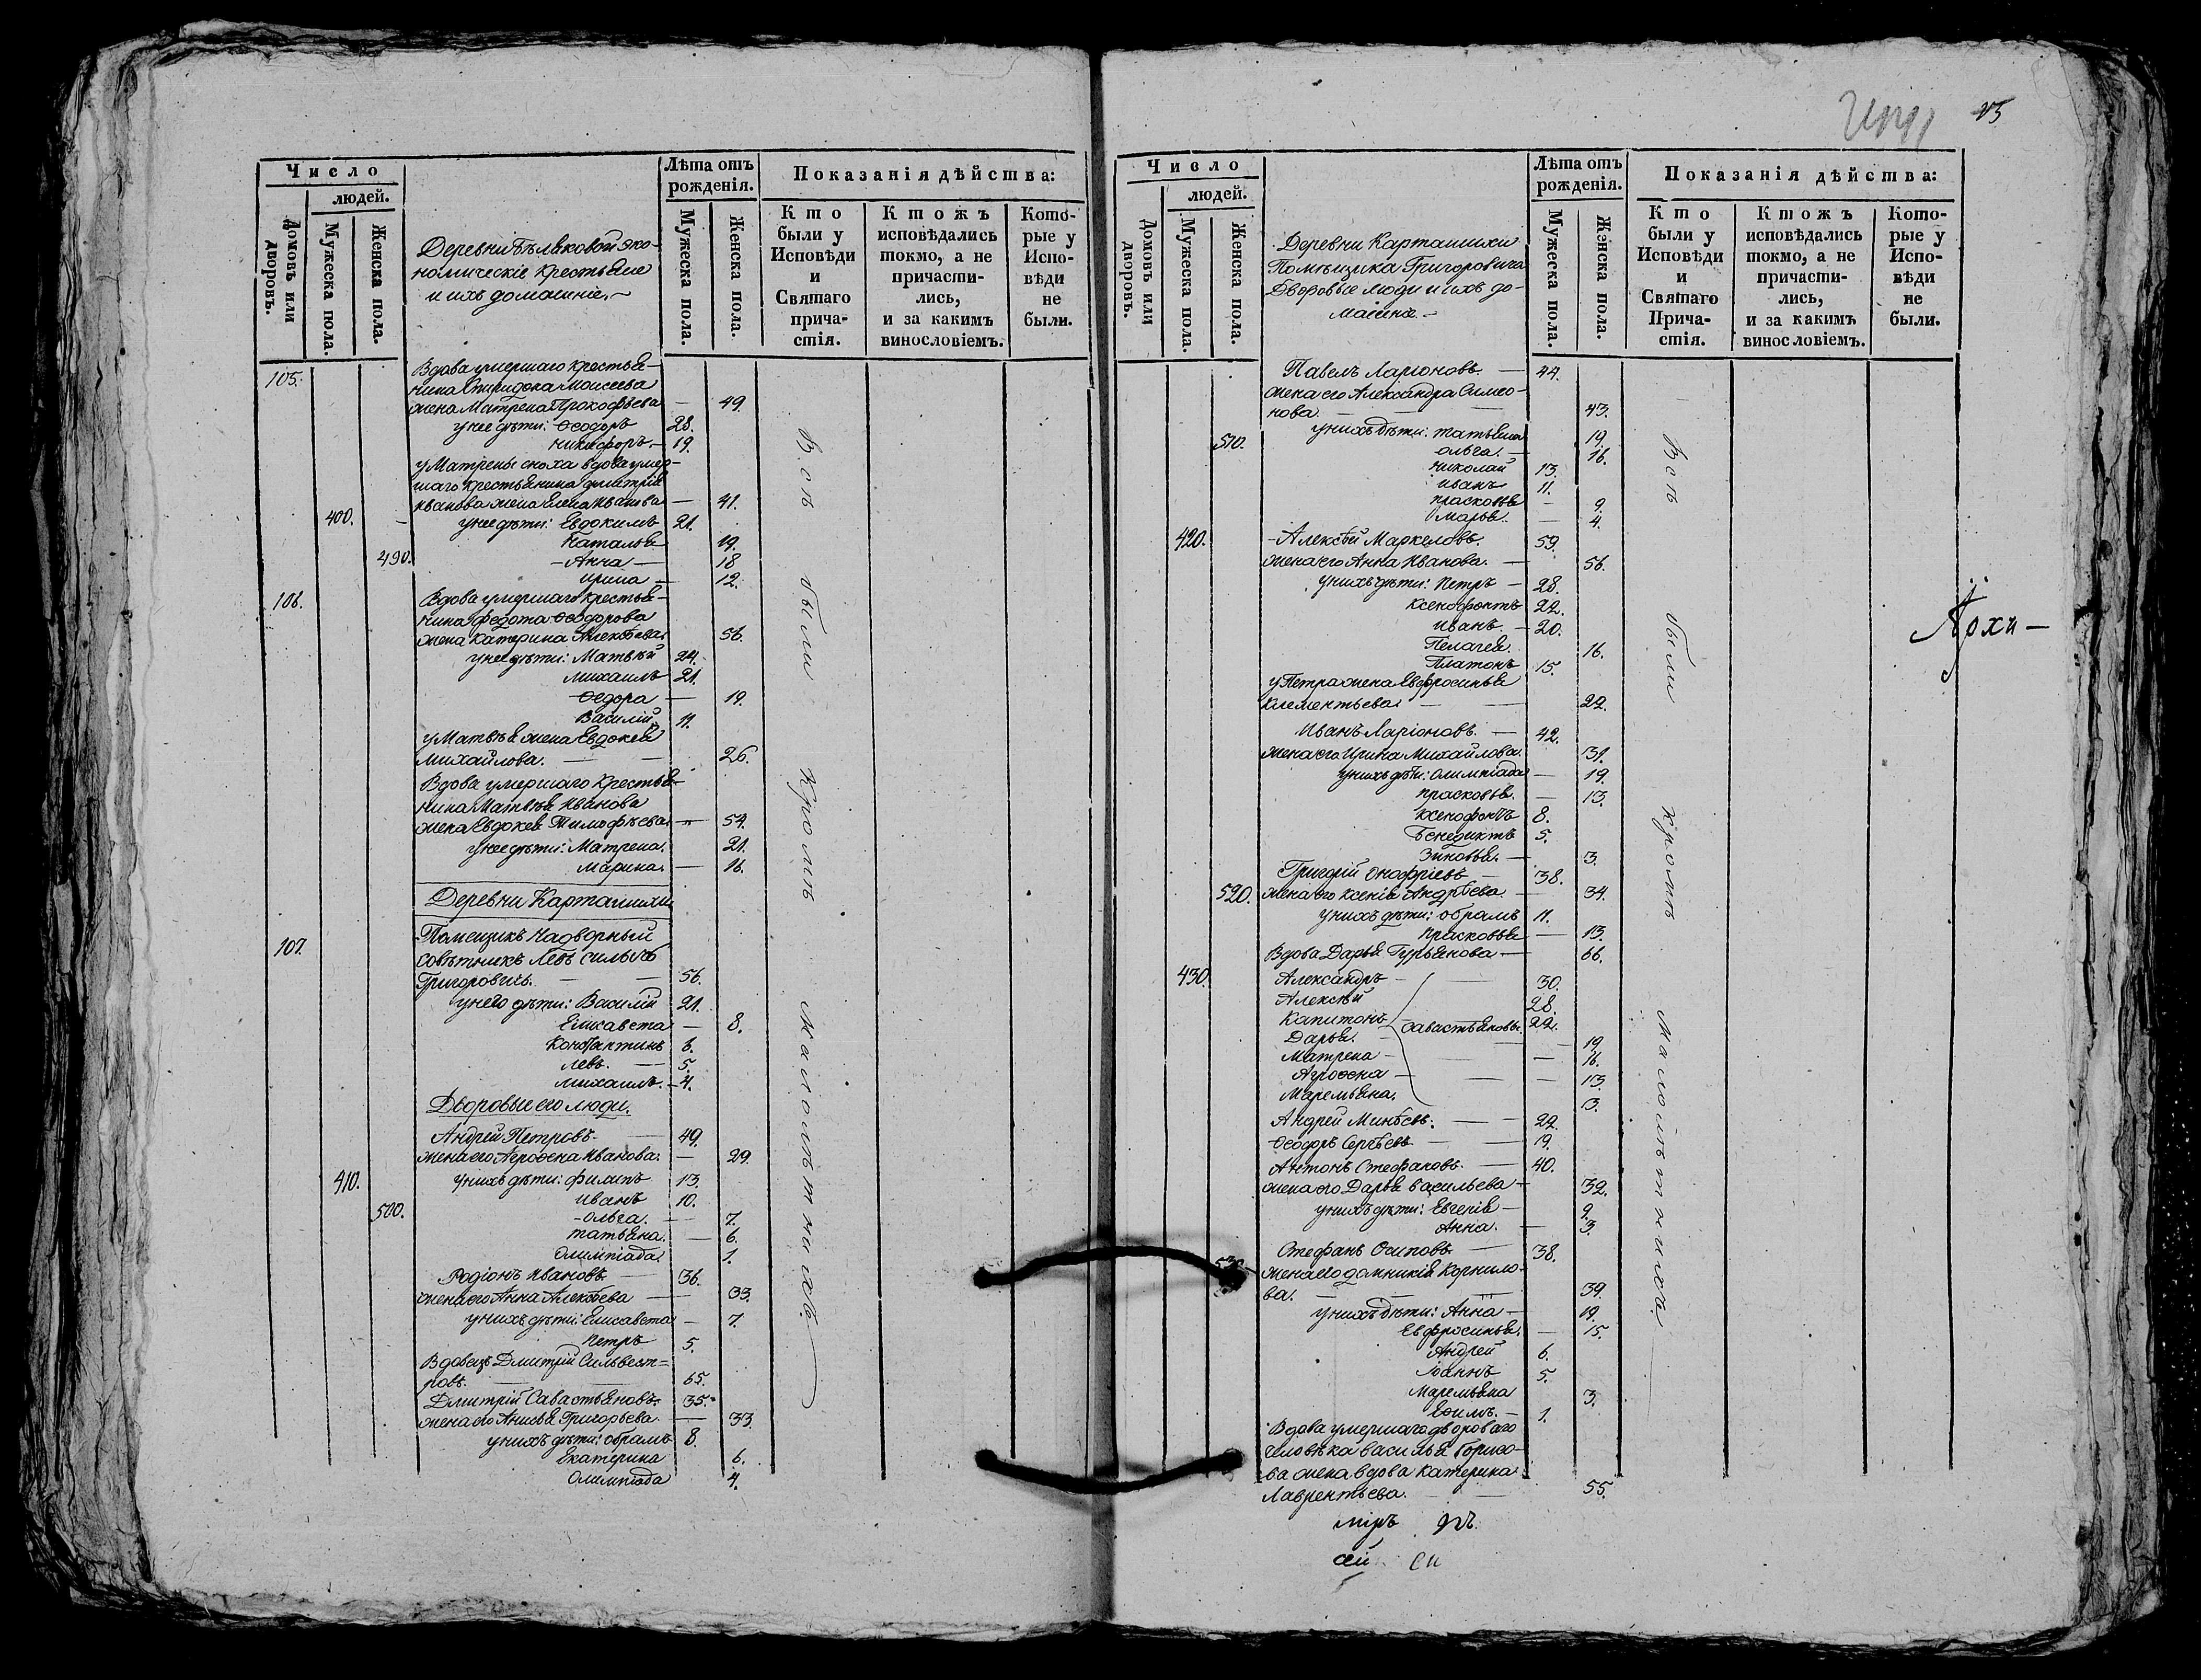 25
Число
людей.
Домовъ или дворовъ.
Мужеска пола.
Женска пола.
Деревни Бѣляковой эко-
номическіе крестьяне
и ихъ домашніе.
Лѣта отъ рожденія.
Мужеска пола.
Женска пола.
Показанія дѣйства:
Кто были у Исповѣди и Святаго причастія.
Ктожъ исповѣдались токмо, а не причастились, и за какимъ винословіемъ.
Которые у Исповѣди не были.
105. Вдова умершаго крестья-
нина Спиридона Моисеева
жена Матрена Прокофьева — 49.
у нее дѣти: Ѳеодоръ 28.
Никифоръ — 19.
у Матрены сноха вдова умер-
шаго крестьянина Дмитрія
Иванова жена Елена Иванова — 41.
400. у нее дѣти: Евдокимъ 21.
Наталья 19.
490. Анна — 18
Ирина — 12.
106. Вдова умершаго крестья-
нина Федота Ѳеодорова
жена Катерина Алексѣева 56.
у нее дѣти: Матвѣй 24.
Михаилъ 21.
Ѳедора — 19.
Василій 11.
у Матвѣя жена Евдокея
Михайлова. — 26.
Вдова умершаго крестья-
нина Матвѣя Иванова
жена Евдокея Тимофѣева — 54.
у нее дѣти: Матрена. 21.
Марина. — 16.
Деревни Карташихи
107. Помещикъ Надворный
Совѣтникъ Левъ Силычъ
Григоровичь. — 56.
у него дѣти: Василій 21.
Елисавета — 8.
Константинъ 6.
Левъ. — 5.
Михаилъ. — 4.
Дворовые его люди.
Андрей Петровъ — 49.
жена его Агроѳена Иванова. — 29.
410. у нихъ дѣти: Филипъ 13.
Иванъ 10.
500. Ольга. — 7.
Татьяна. — 6.
Олимпіада. 1.
Родіонъ Ивановъ — 36.
жена его Анна Алексѣева — 33.
у нихъ дѣти: Елисавета — 7.
Петръ 5.
Вдовецъ Дмитрій Сильвест-
ровъ. — 65.
Дмитрій Савастьяновъ. 35.
жена его Анисья Григорьева. — 33.
у нихъ дѣти: Обрамъ 8.
Екатерина 6.
Олимпіада 4.
Всѣ были кромѣ малолѣтнихъ
Число
людей.
Домовъ или дворовъ.
Мужеска пола.
Женска пола.
Деревни Карташихи
Помѣщика Григоровича
Дворовые люди и ихъ до-
машніе. —
Лѣта отъ рожденія.
Мужеска пола.
Женска пола.
Показанія дѣйства:
Кто были у Исповѣди и Святаго Причастія.
Ктожъ исповѣдались токмо, а не причастились, и за какимъ винословіемъ.
Которые у Исповѣди не были.
Павелъ Ларіоновъ — 44.
жена его Александра Симео-
нова. — 43.
у нихъ дѣти: Татьяна 19.
510. Ольга. — 16.
Николай 13.
Иванъ 11.
Прасковья — 9.
Марья. — 4.
420. Алексѣй Маркеловъ. 59.
жена его Анна Иванова. — 56.
у нихъ дѣти: Петръ — 28.
Ксенофонтъ 22.
Иванъ. — 20.
Пелагея. 16.
Платонъ 15.
у Петра жена Евфросинья
Клементьева — 22.
Иванъ Ларіоновъ. — 42.
жена его Ирина Михайлова. 39.
у нихъ дѣти: Олимпіада — 19.
Прасковья. — 13.
Ксенофонтъ 8.
Бенедиктъ 5.
Зиновья. — 3.
Григорій Онофріевъ — 38.
520. жена его Ксенія Андрѣева. — 34.
у нихъ дѣти: Обрамъ 11.
Прасковья — 13.
Вдова Дарья Гурьянова — 66.
430. Александръ — 30.
Алексѣй 28.
Капитонъ — Савастьяновы. 22.
Дарья. — 19.
Матрена — 16.
Агроѳена — 13.
Маремьяна. 3.
Андрей Минѣевъ. — 22.
Ѳеодоръ Сергѣевъ — 19.
Антонъ Стефановъ. — 40.
жена его Дарья Васильева — 32.
у нихъ дѣти: Евгенія — 9.
Анна. — 3.
Стефанъ Осиповъ — 38.
жена его Домникія Корнило-
ва. — 39.
у нихъ дѣти: Анна — 19.
Евфросинья. — 15.
Андрей 6.
Іоаннъ 5.
Маремьяна 3.
Ефимъ. — 1.
Вдова умершаго двороваго
человѣка Василья Борисо-
ва жена вдова Катерина
Лаврентьева. — 55.
Всѣ были кромѣ малолѣтнихъ